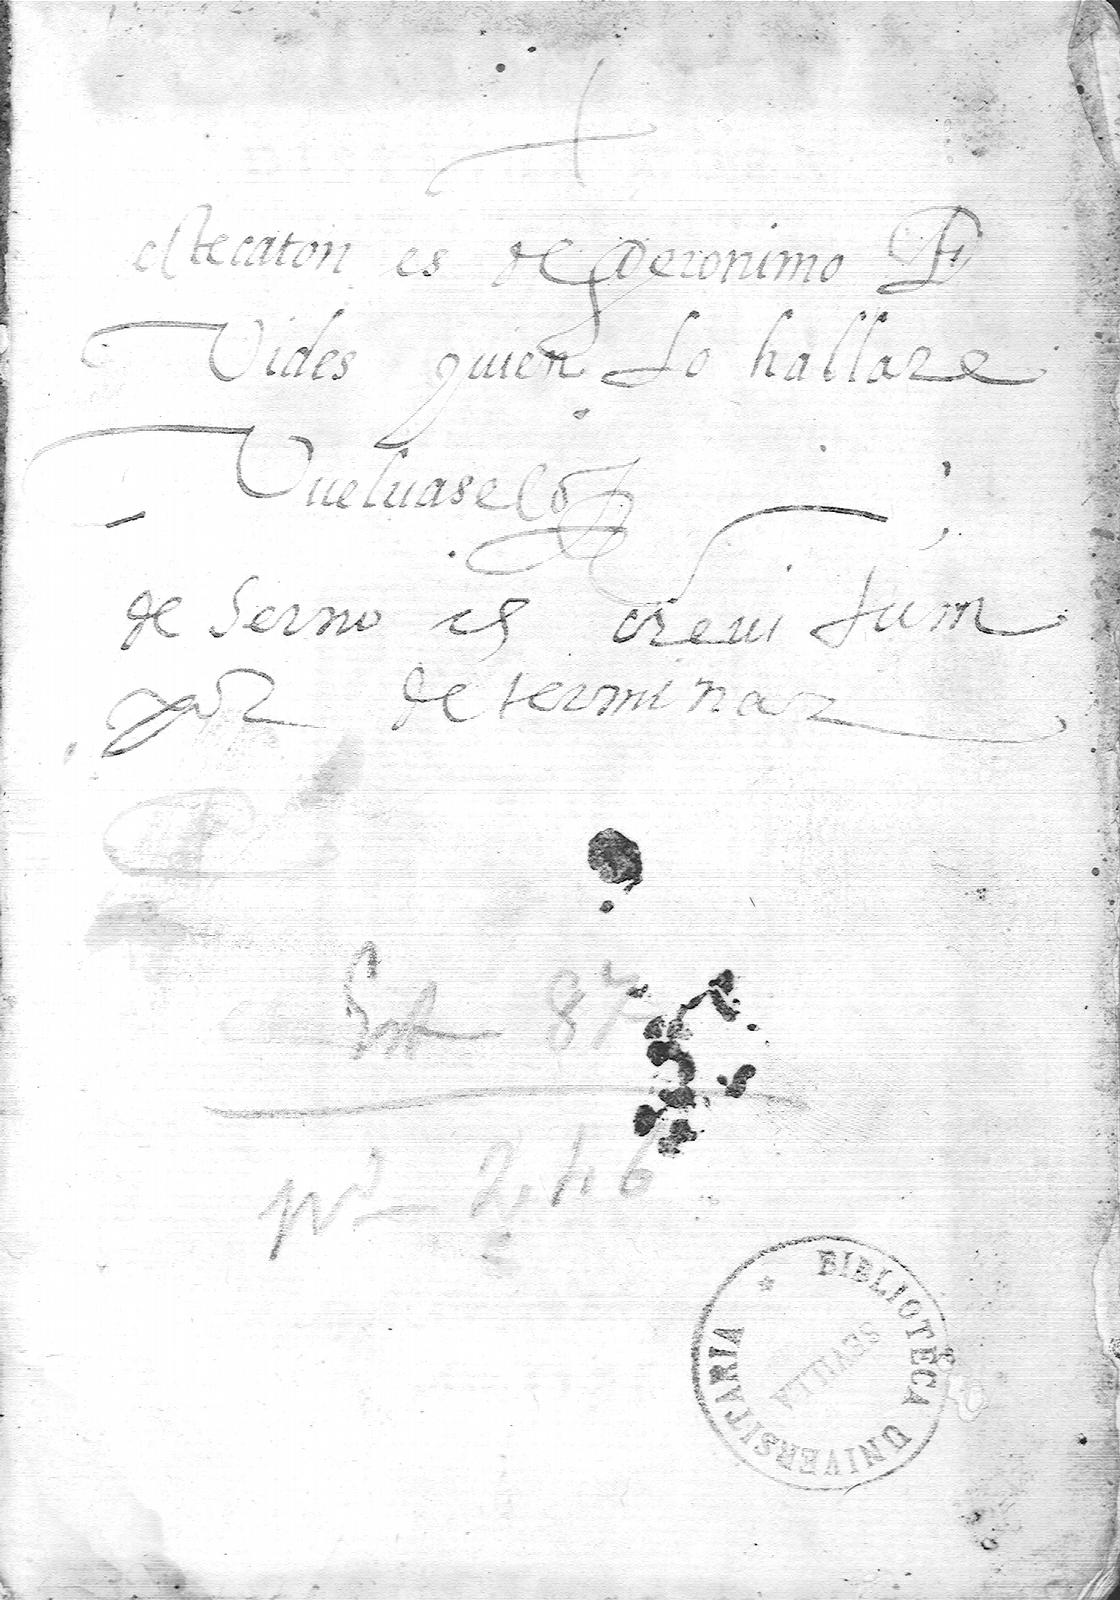 este caton es de geronimo
Vides quien lo hallare
Vueluaselo
de serno es creui tum
por determinar
Est 87
nº 246
BIBLIOTECA UNIVERSITARIA
SEVILLA